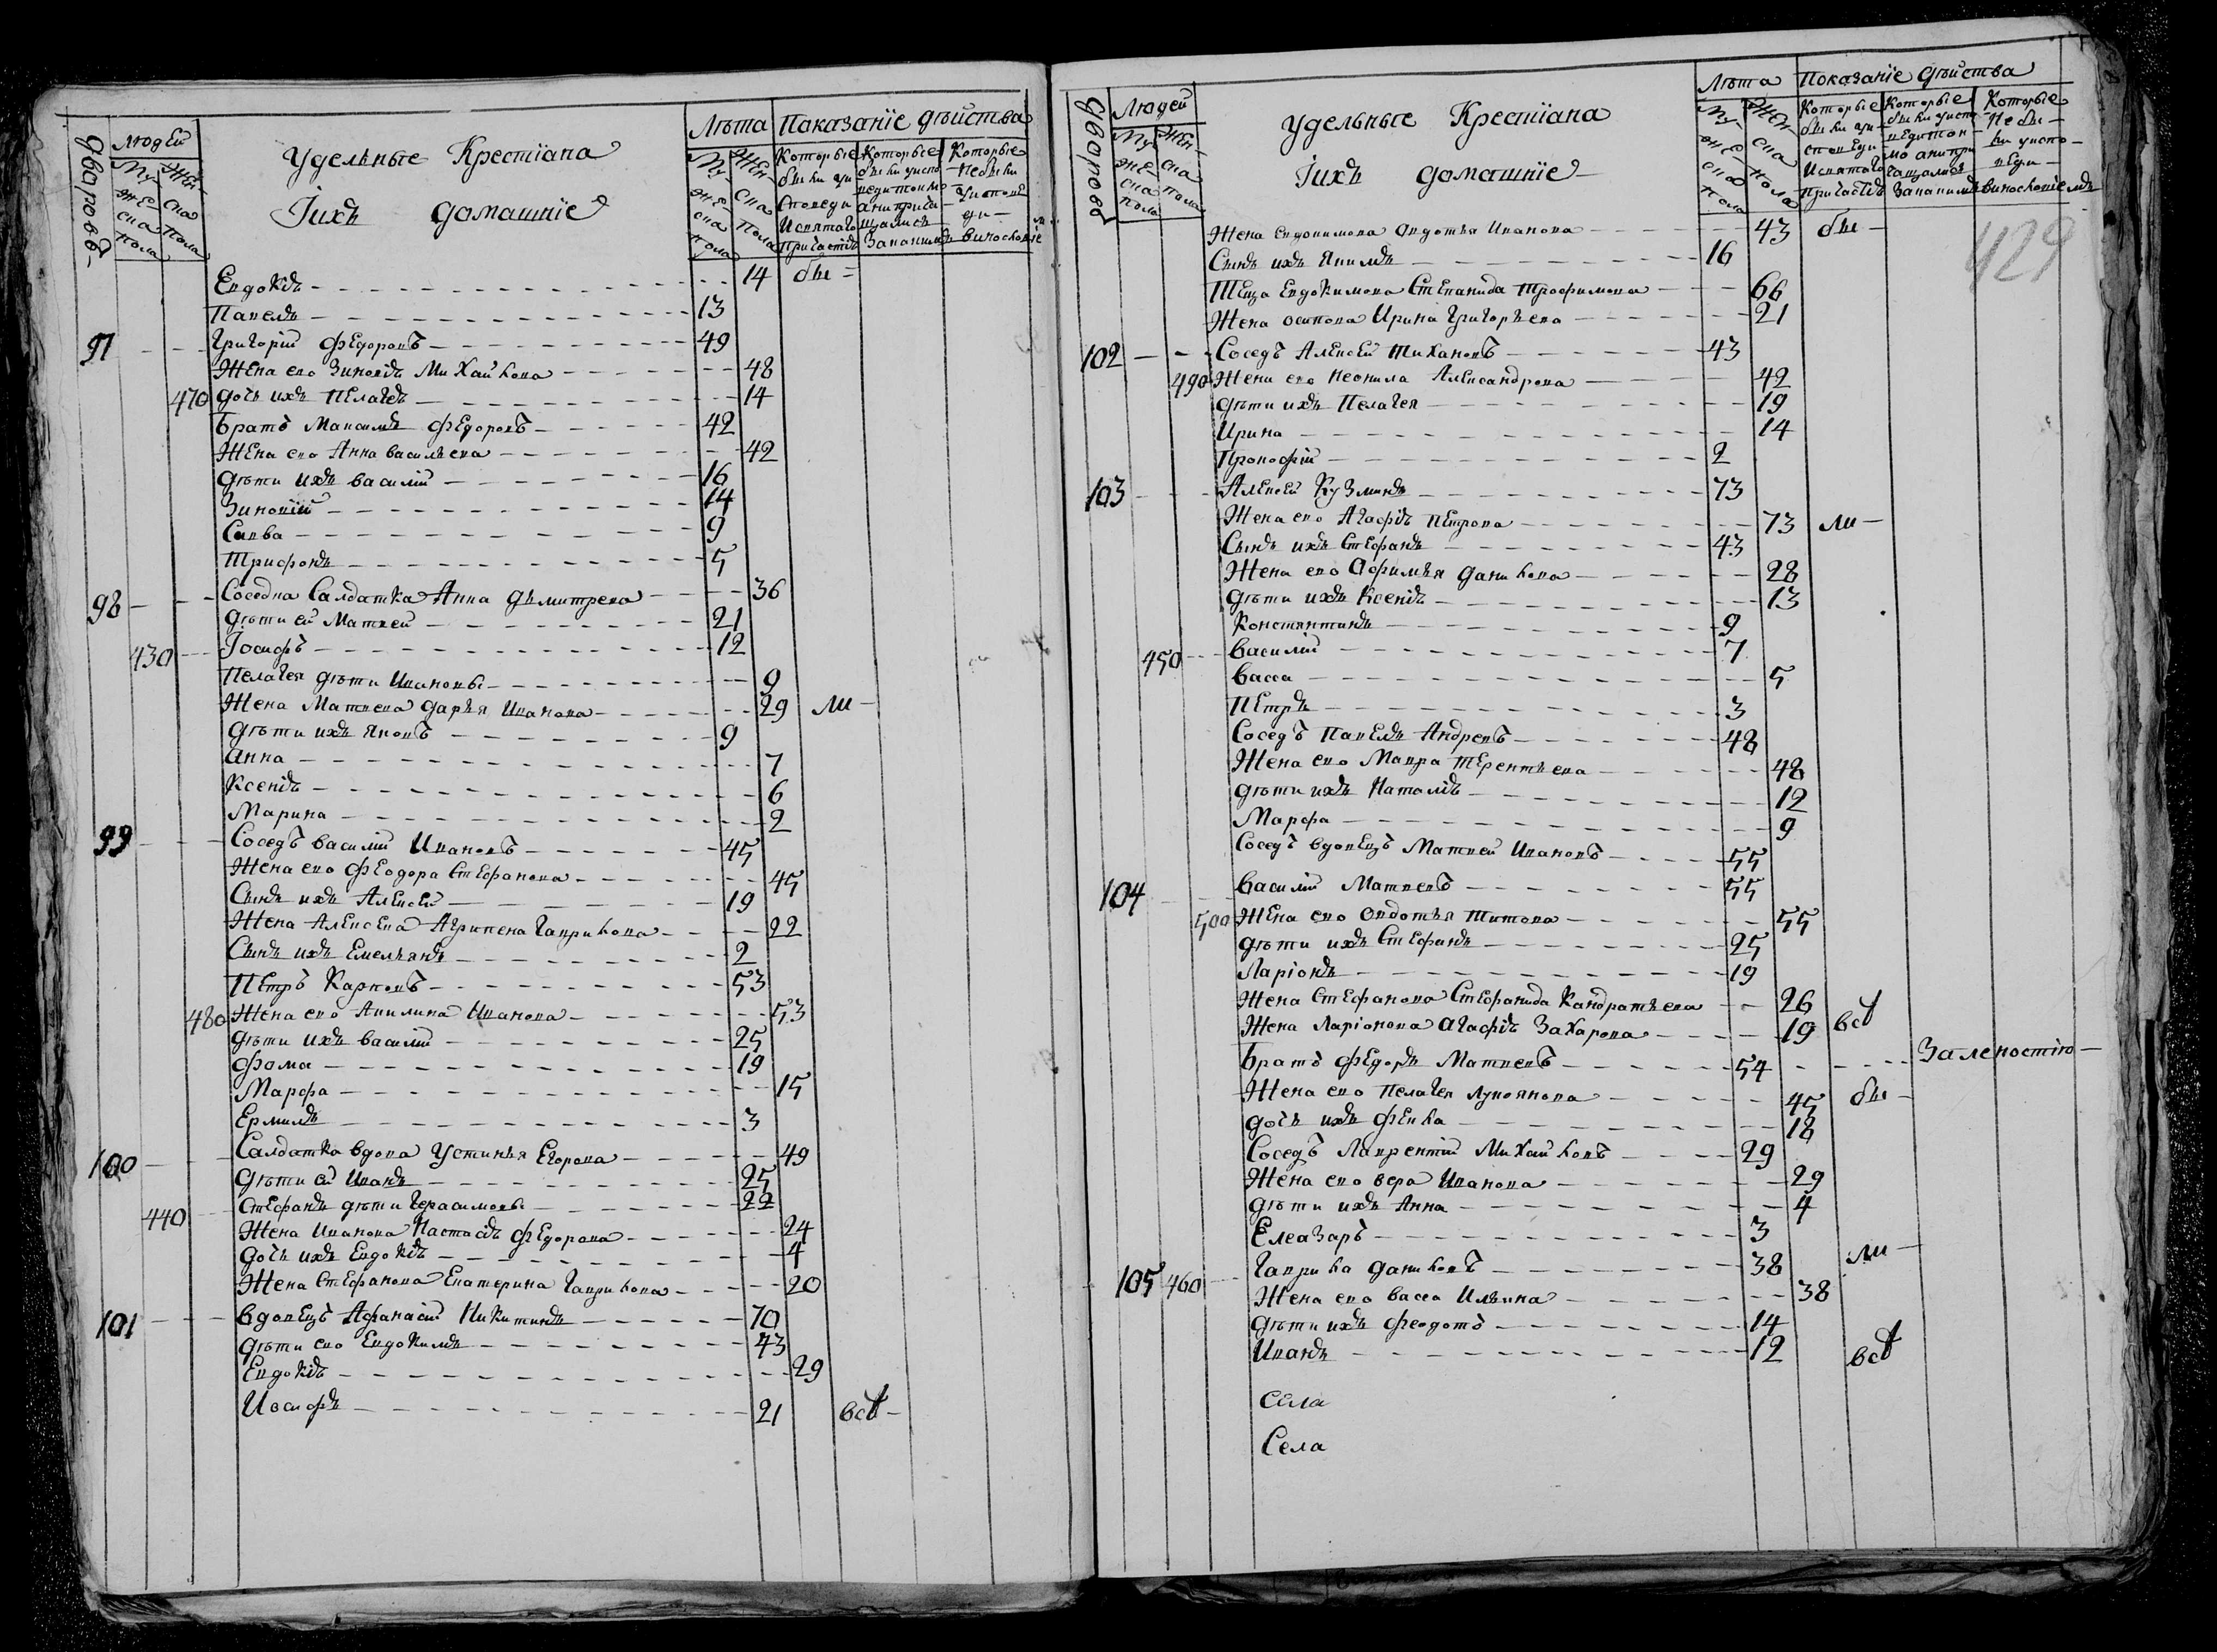 дворовъ
людей
Мужеска пола
Женска пола
Удельные Крестiана
Iихъ домашнiе
Лѣта
Мужеска пола
Женска пола
Показанiе дѣйства
Которые были уисповеди Исвятаго Причастiя
Которые были уисповеди токмо
Которые небыли уисповеди
Евдокiя 14 бы-
Павелъ 13
97 Григорiй Федоровъ 49
Жена его Зиновiя Михайлова 48
470 дочь ихъ Пелагея 14
братъ Максимъ Федоровъ 42
Жена его Анна васильева 42
дѣти ихъ василiй 16
Зиновiй 14
Савва 9
Трифонъ 5
98 Соседка Салдатка Анна Дьмитрева 36
дѣти ей Матвей 21
430 Iосифъ 12
Пелагея дѣти Ивановы 9
Жена Матвева дарья Иванова 29 ли-
дѣти ихъ Яковъ 9
Анна 7
Ксенiя 6
Марина 2
99 Соседъ василiй Ивановъ 45
Жена его Феодора Стефанова 45
Сынъ ихъ Алексей 19
Жена Алексева Агрипена Гаврилова 22
Сынъ ихъ Емельянъ 2
Петръ Карповъ 53
480 Жена его Акилина Иванова 53
дѣти ихъ василiй 25
Фома 19
Марфа 15
Ермилъ 3
100 Салдатка вдова Устинья Егорова 49
дѣти ей Иванъ 25
440 Стефанъ дѣти Герасимовы 22
Жена Иванова Настасiя Федорова 24
дочь ихъ Евдокiя 4
Жена Стефанова Екатерина Гаврилова 20
101 вдовецъ Афанасiй Никитинъ 70
дѣти его Евдокимъ 43
Евдокiя 29
Иосифъ 21 всѣ-
дворовъ
Людей
Мужеска пола
Женска пола
Удельные Крестiана
Iихъ домашнiе
Лѣта
Мужеска пола
Женска пола
Показанiе дѣйства
Которые были уисповеди Исвятаго Причастiя
Которые были уисповеди
Которые Небыли уисповеди
429
Жена евдокимова Авдотья Иванова 43 бы-
Сынъ ихъ Якимъ 16
Теща Евдокимова Степанида Трофимова 66
Жена осипова Ирина Григорьева 21
102 Соседъ Алексей Тихановъ 43
490 Жена его Неонила Александрова 42
дѣти ихъ Пелагея 19
Ирина 14
Прокофiй 2
103 Алексей Кузминъ 73
Жена его Агафiя Петрова 73 ли-
Сынъ ихъ Стефанъ 43
Жена его Афимья данилова 28
дѣти ихъ Ксенiя 13
Константинъ 9
450 василiй 7
васса 5
Петръ 3
Соседъ Павелъ Андревъ 48
Жена его Мавра Терентьева 48
дѣти ихъ Наталiя 12
Марфа 9
Соседъ вдовецъ Матвей Ивановъ 55
104 василiй Матвевъ 55
500 Жена его Овдотья Титова 55
дѣти ихъ Стефанъ 25
Ларiонъ 19
Жена Стефанова Стефанида Кандратьева 26
Жена Ларiонова Агафiя Захарова 19 всѣ
братъ Федоръ Матвевъ 54 Заленостiю-
Жена его Пелагея Лукоянова 45 бы-
дочь ихъ Фекла 18
Соседъ Лаврентiй Михайловъ 29
Жена его вера Иванова 29
дѣти ихъ Анна 4
Елеазаръ 3
105 460 Гаврила даниловъ 38 ли-
Жена его васса Ильина 38
дѣти ихъ Феодотъ 14
Иванъ 12 всѣ
Села
Села